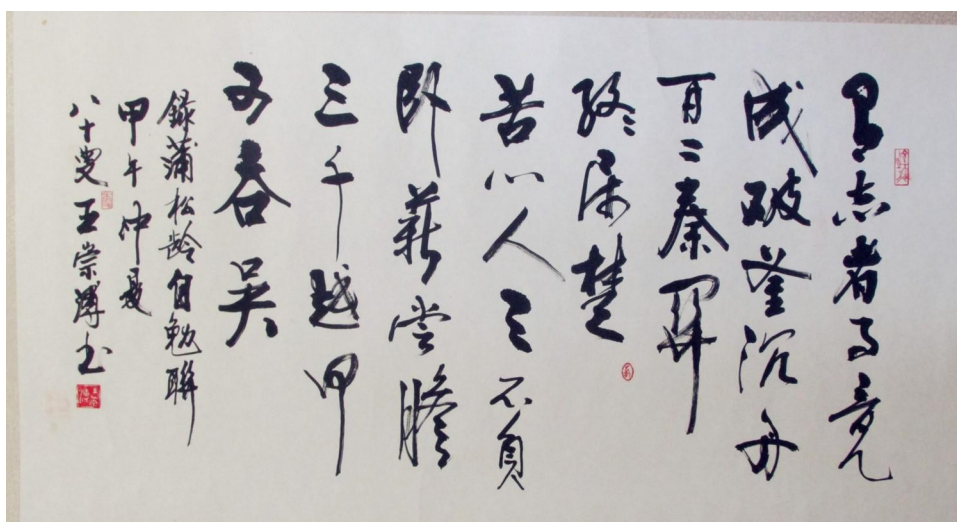 有志者事竟
成破釜沉舟
百二秦關
终属楚
苦心人天不負
卧薪尝膽
三千越甲
可吞吴
録蒲松龄自勉聯
甲午仲夏
八十叟王崇书